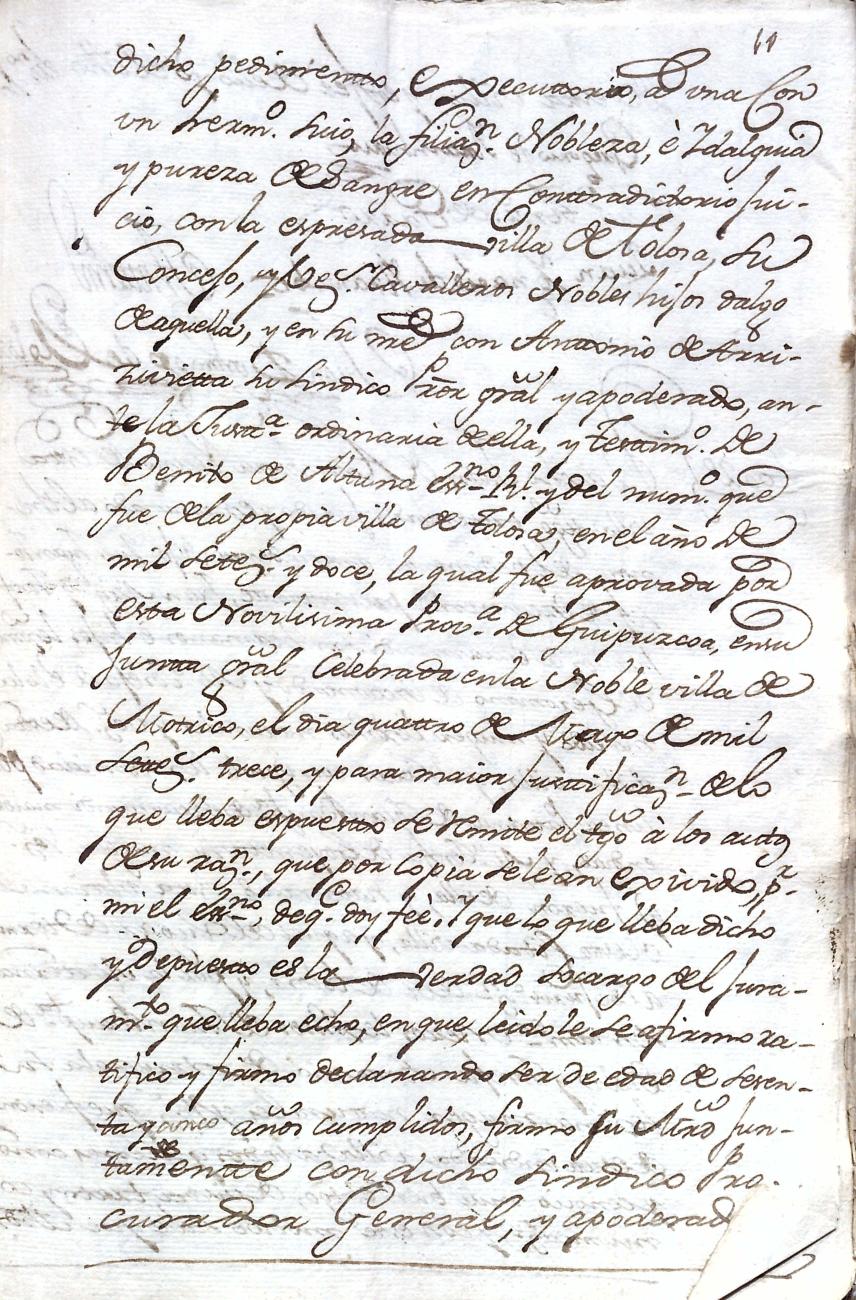 11
dicho pedimentto, executtorio, a una Con
un herm.º suio, la filiaz.n Nobleza, è Ydalguia
y pureza de Sangre en Conttradictorio Jui-
cio, con la espresada villa de Tolosa, su
Concejo, y Vez.s Cavalleros Nobles hijos dalgo
de aquella, y en su nre con Anttonio de Arri-
zurietta su Sindico Pror gral y apoderado, an-
te la Justt.a ordinaria de ella, y Testtim.º De
Benito de Altuna Ess.no Rl. y del num.º que
fue de la propia villa de Tolosa, en el año De
mil setez.s y doce, la qual fue aprovada por
esta Novilisima Prov.a De Guipuzcoa, en su
Juntta gral Celebrada en la Noble villa de
Motrico, el dia quattro de Mayo de mil
setez.s trece, y para maior Justtificaz.n de lo
que lleba espuestto se remite el tgo à los autos
de su raz.n, que por copia se le an exivido, p.r
mi el Ess.no, de q.e doy feè. Y que lo que lleba dicho
y Depuestto es la verdad so cargo del Jura-
m.to que lleba echo, en que, leidole se afirmo ra-
tifico y firmo declarando ser de edad de sesen-
ta y cinco años cumplidos, firmo su Mrd Jun-
tamentte con dicho Sindico Pro-
curador General, y apoderad